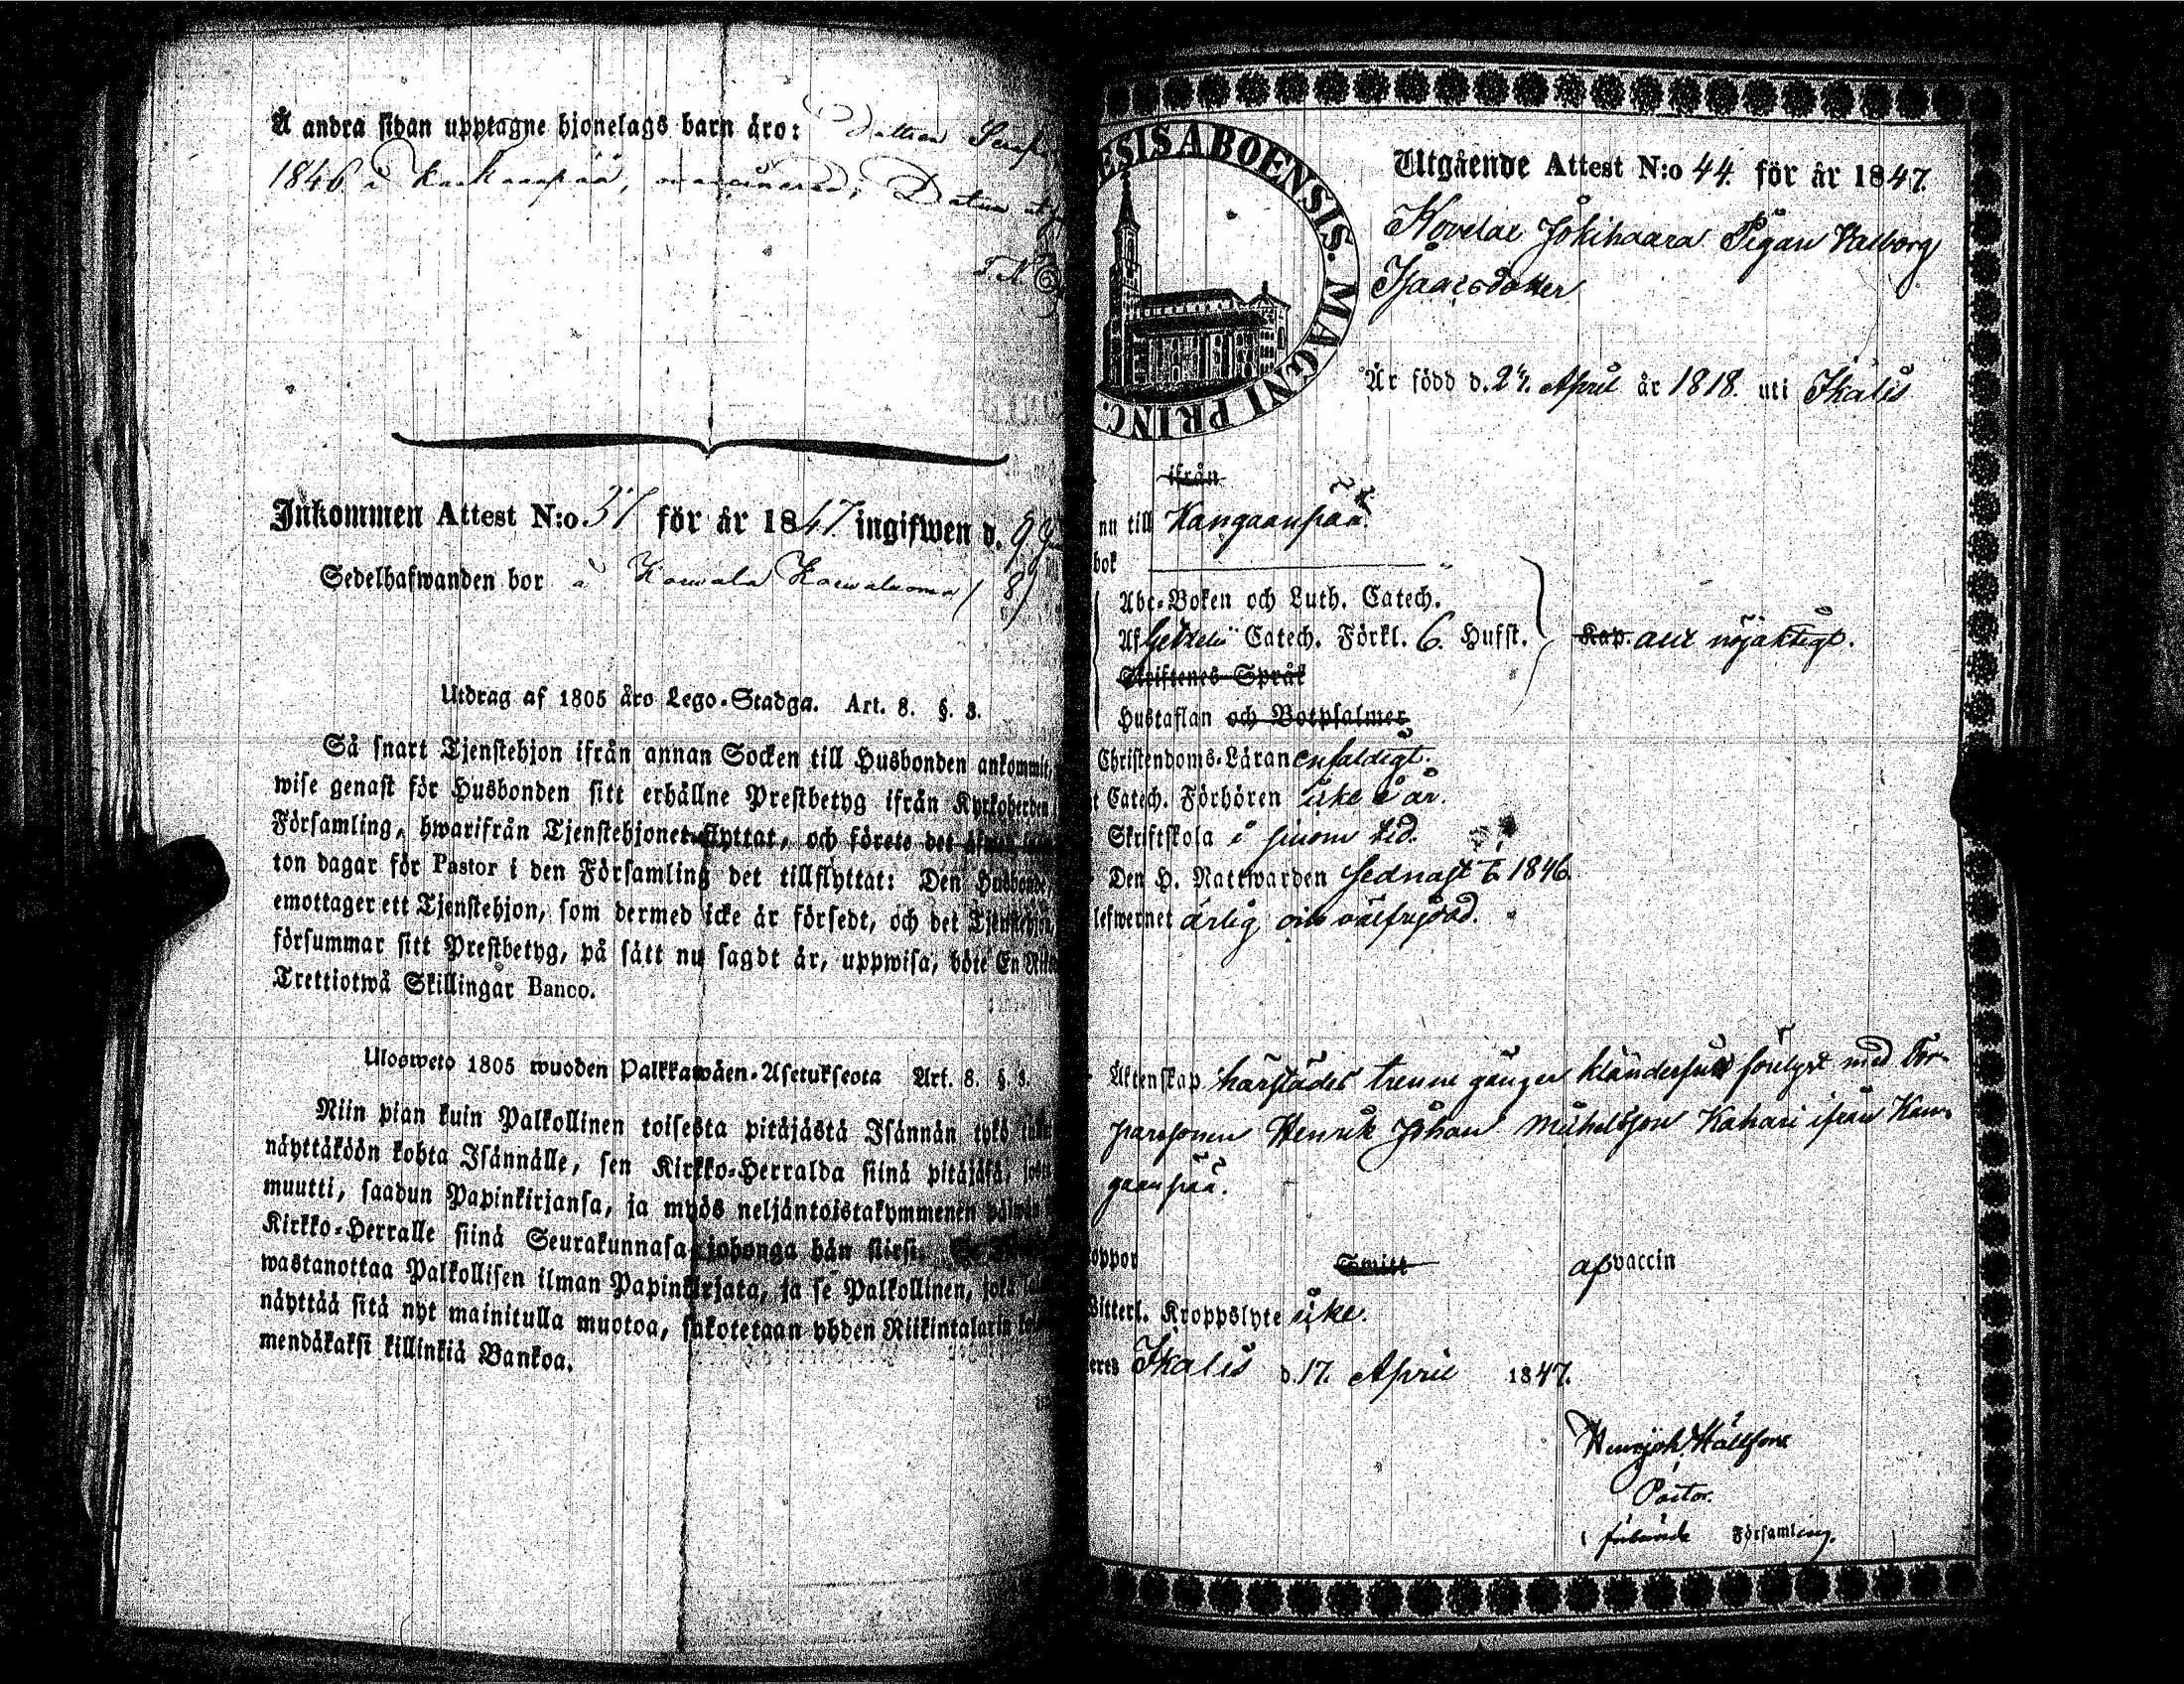 Å andra sidan upptagne hjonelags barn äro:
1846 i
Inkommen Attest N:o 37 för år 1847. ingifwen d. 9
Sedelhafwanden bor å Karwala
Utdrag af 1805 åro Lego-Stadga. Art. 8. §. 3.
Så snart Tjenstehjon ifrån annan Socken till Husbonden ankommit,
wise genast för Husbonden sitt erhållne Prestbetyg ifrån Kyrkoherden
Församling, hwarifrån Tjenstehjonet flyttat, och förete det
ton dagar för Pastor i den Församling det tillflyttat: Den Husbonde,
emottager ett Tjenstehjon, som dermed icke är försedt, och det Tjenstehjon,
försummar sitt Prestbetyg, på sätt nu sagdt är, uppwisa, böte En Riks
Trettiotwå Skillingar Banco.
Uloswето 1805 wuoden Palkkawäen-Asetuksesta Art. 8. §. 3.
Niin pian kuin Palkollinen toisesta pitäjästä Isännän tykö
näyttäköön kohta Isännälle, sen Kirkko-Herralda siinä pitäjäsä,
muutti, saadun Papinkirjansa, ja myös neljäntoistakymmenen päiwän
Kirkko-Herralle siinä Seurakunnasa johonga hän siirsi.
wastanottaa Palkollisen ilman Papinkirjata, ja se Palkollinen, joka
näyttää sitä nyt mainitulla muotoa, sakotetaan yhden Riikintalarin
mendäkaksi killinkiä Bankoa.
ESIS ABOENSIS. MAGNI PRINC.
Utgående Attest N:o 44. för år 1847.
Jokihaara Pigan Valborg
Isaacsdotter
Är född d. 27. April år 1818. uti Ikalis
ifrån
nu till Kangaanpää.
bok
Abc-Boken och Luth. Catech.
Af Catech. Förkl. 6. Hufst. Kap. allt nöjaktigt.
Skriftenes Språk
Hustaflan och Botpsalmer
Christendoms-Läran enfaldigt.
Catech. Förhören i år.
Skriftskola i sinom tid.
Den H. Nattwarden sednast 1846.
lefwernet ärlig och välfrejdad.
Äktenskap härstädes trenne gånger klanderfritt förelyst med Tor-
parsonen Henrik Johan Michelsson Kahari ifrån Kan-
gaanpää.
oppor Smitt af vaccin
Witterl. Kroppslyte icke.
Ikalis d. 17. April 1847.
Pastor.
i Församling.